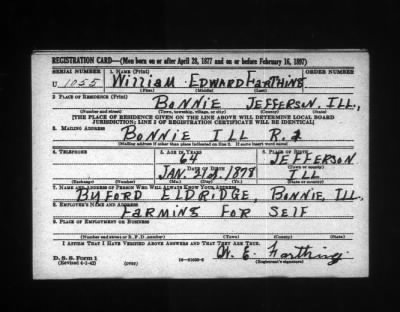 REGISTRATION CARD—(Men born on or after April 28, 1877 and on or before February 16, 1897)
SERIAL NUMBER 1. NAME (Print) ORDER NUMBER
U 1055 WILLIAM EDWARD FARTHING
(First) (Middle) (Last)
2. PLACE OF RESIDENCE (Print)
BONNIE JEFFERSON. ILL.,
(Number and street) (Town, township, village, or city) (County) (State)
[THE PLACE OF RESIDENCE GIVEN ON THE LINE ABOVE WILL DETERMINE LOCAL BOARD
JURISDICTION; LINE 2 OF REGISTRATION CERTIFICATE WILL BE IDENTICAL]
3. MAILING ADDRESS
BONNIE ILL R. 2
[Mailing address if other than place indicated on line 2. If same insert word same]
4. TELEPHONE 5. AGE IN YEARS 6. PLACE OF BIRTH
64 JEFFERSON
DATE OF BIRTH (Town or county)
JAN. 1878 ILL
(Exchange) (Number) (Mo.) (Day) (Yr.) (State or country)
7. NAME AND ADDRESS OF PERSON WHO WILL ALWAYS KNOW YOUR ADDRESS
BUFORD ELDRIDGE, BONNIE, ILL,
8. EMPLOYER'S NAME AND ADDRESS
FARMING FOR SELF
9. PLACE OF EMPLOYMENT OR BUSINESS
(Number and street or R. F. D. number) (Town) (County) (State)
I AFFIRM THAT I HAVE VERIFIED ABOVE ANSWERS AND THAT THEY ARE TRUE.
D. S. S. Form 1 W. E. Farthing
(Revised 4-1-42) (over) (Registrant's signature)